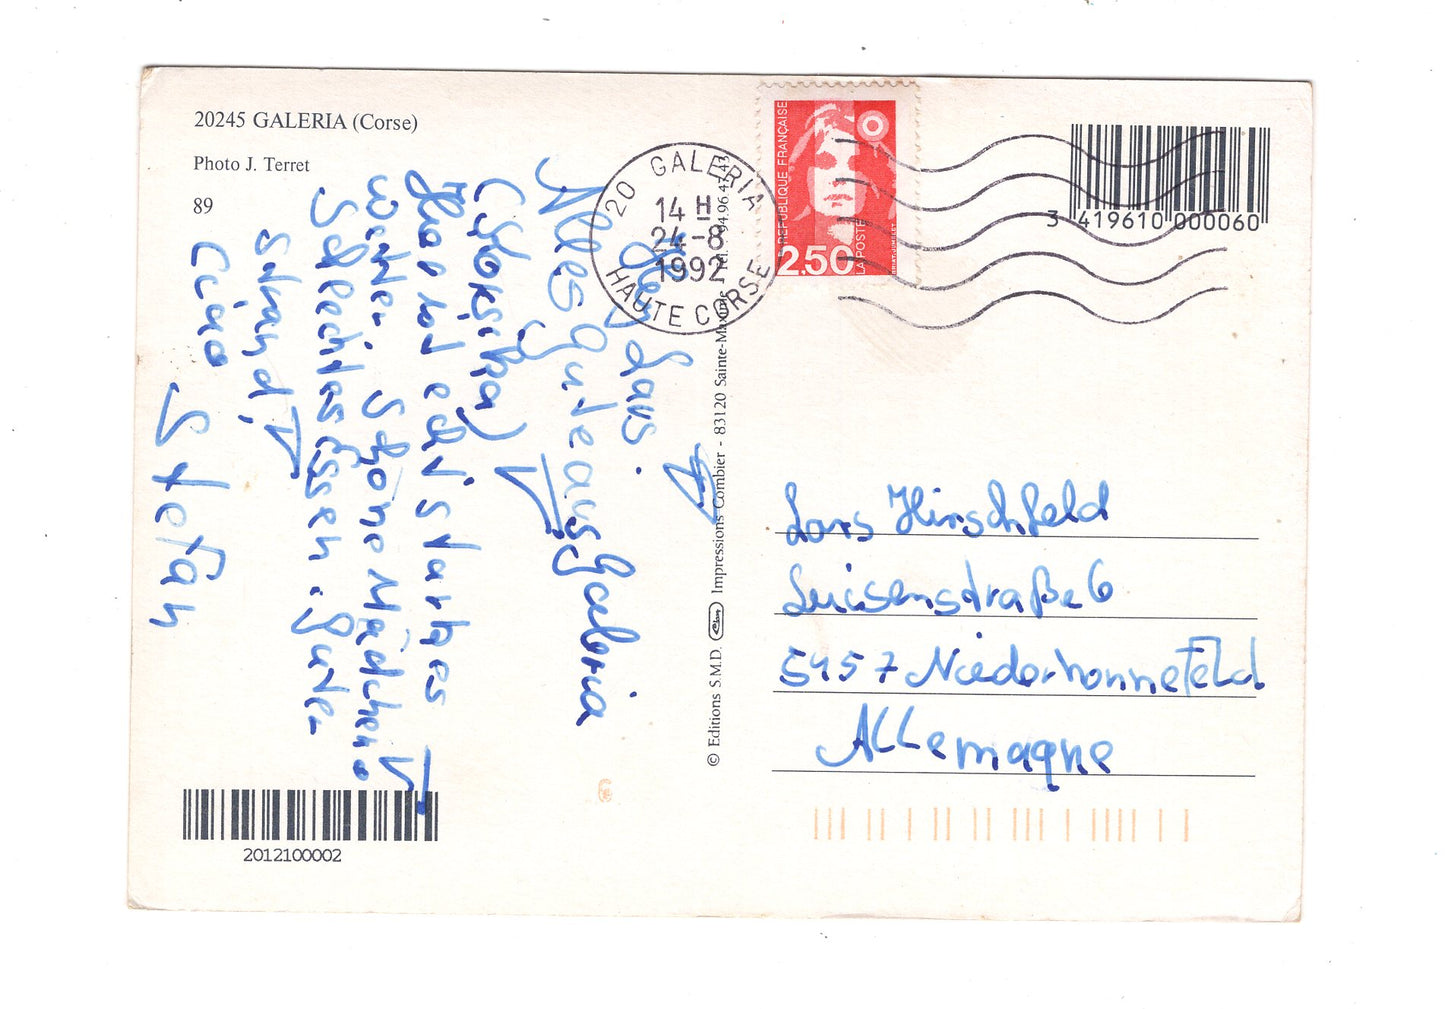 20245 GALERIA (Corse)
Photo J. Terret
89
Hey Lars.
Alles gute aus Galeria
(Korsika)
Hier ist echt starkes
Wetter. Schöne Mädchen.
Schlechtes Essen. guter
Strand,
Ciao
Stefan
2012100002
© Editions S.M.D. Impressions Combier - 83120 Sainte-Maxime - Tél. 94.96.43.43
20 GALERIA
14 H
24-8
1992
HAUTE CORSE
REPUBLIQUE FRANÇAISE
2,50
LA POSTE
3 419610 000060
Lars Hirschfeld
Luisenstraße 6
5457 Niederhonnefeld
Allemagne